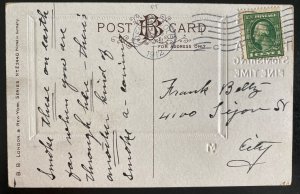 POST CARD
BB
FOR ADDRESS ONLY.
1912
B. B. LONDON & NEW YORK. SERIES No E2440
Smoke these on earth
for when you are
through here - there's
another kind of
smoke a-coming
Frank Beltz
4100 Sijon St
City
M